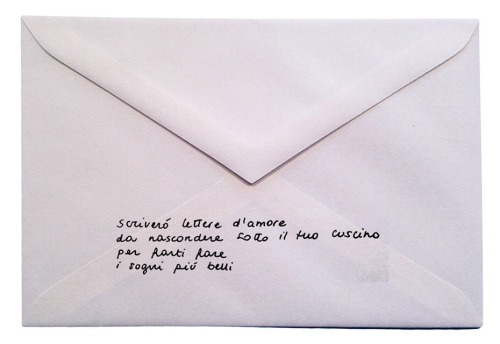 scriveró lettere d'amore
da nascondere sotto il tuo cuscino
per farti fare
i sogni piú belli